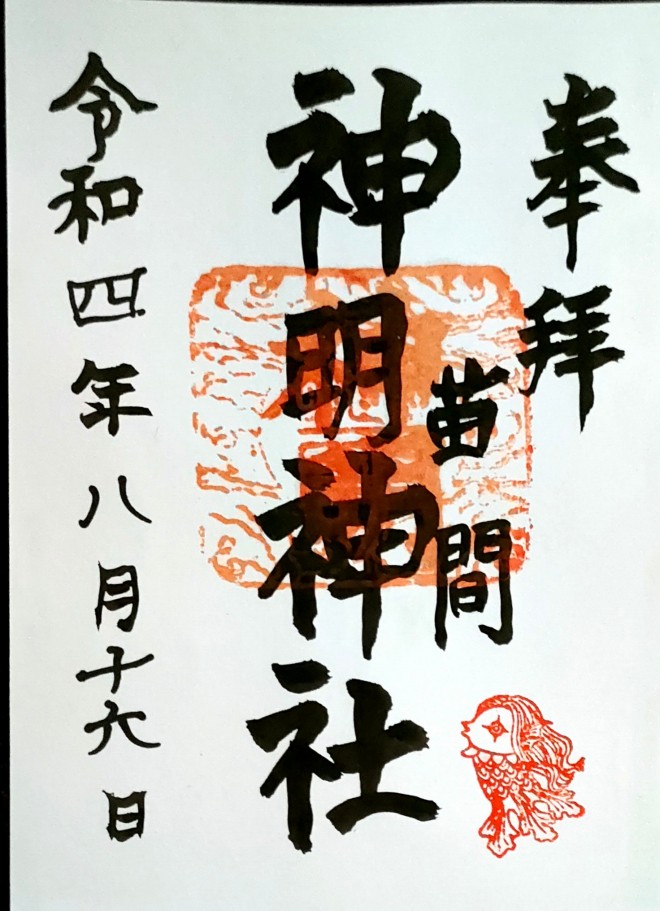 奉拝
苗間
神明神社
令和四年八月十六日